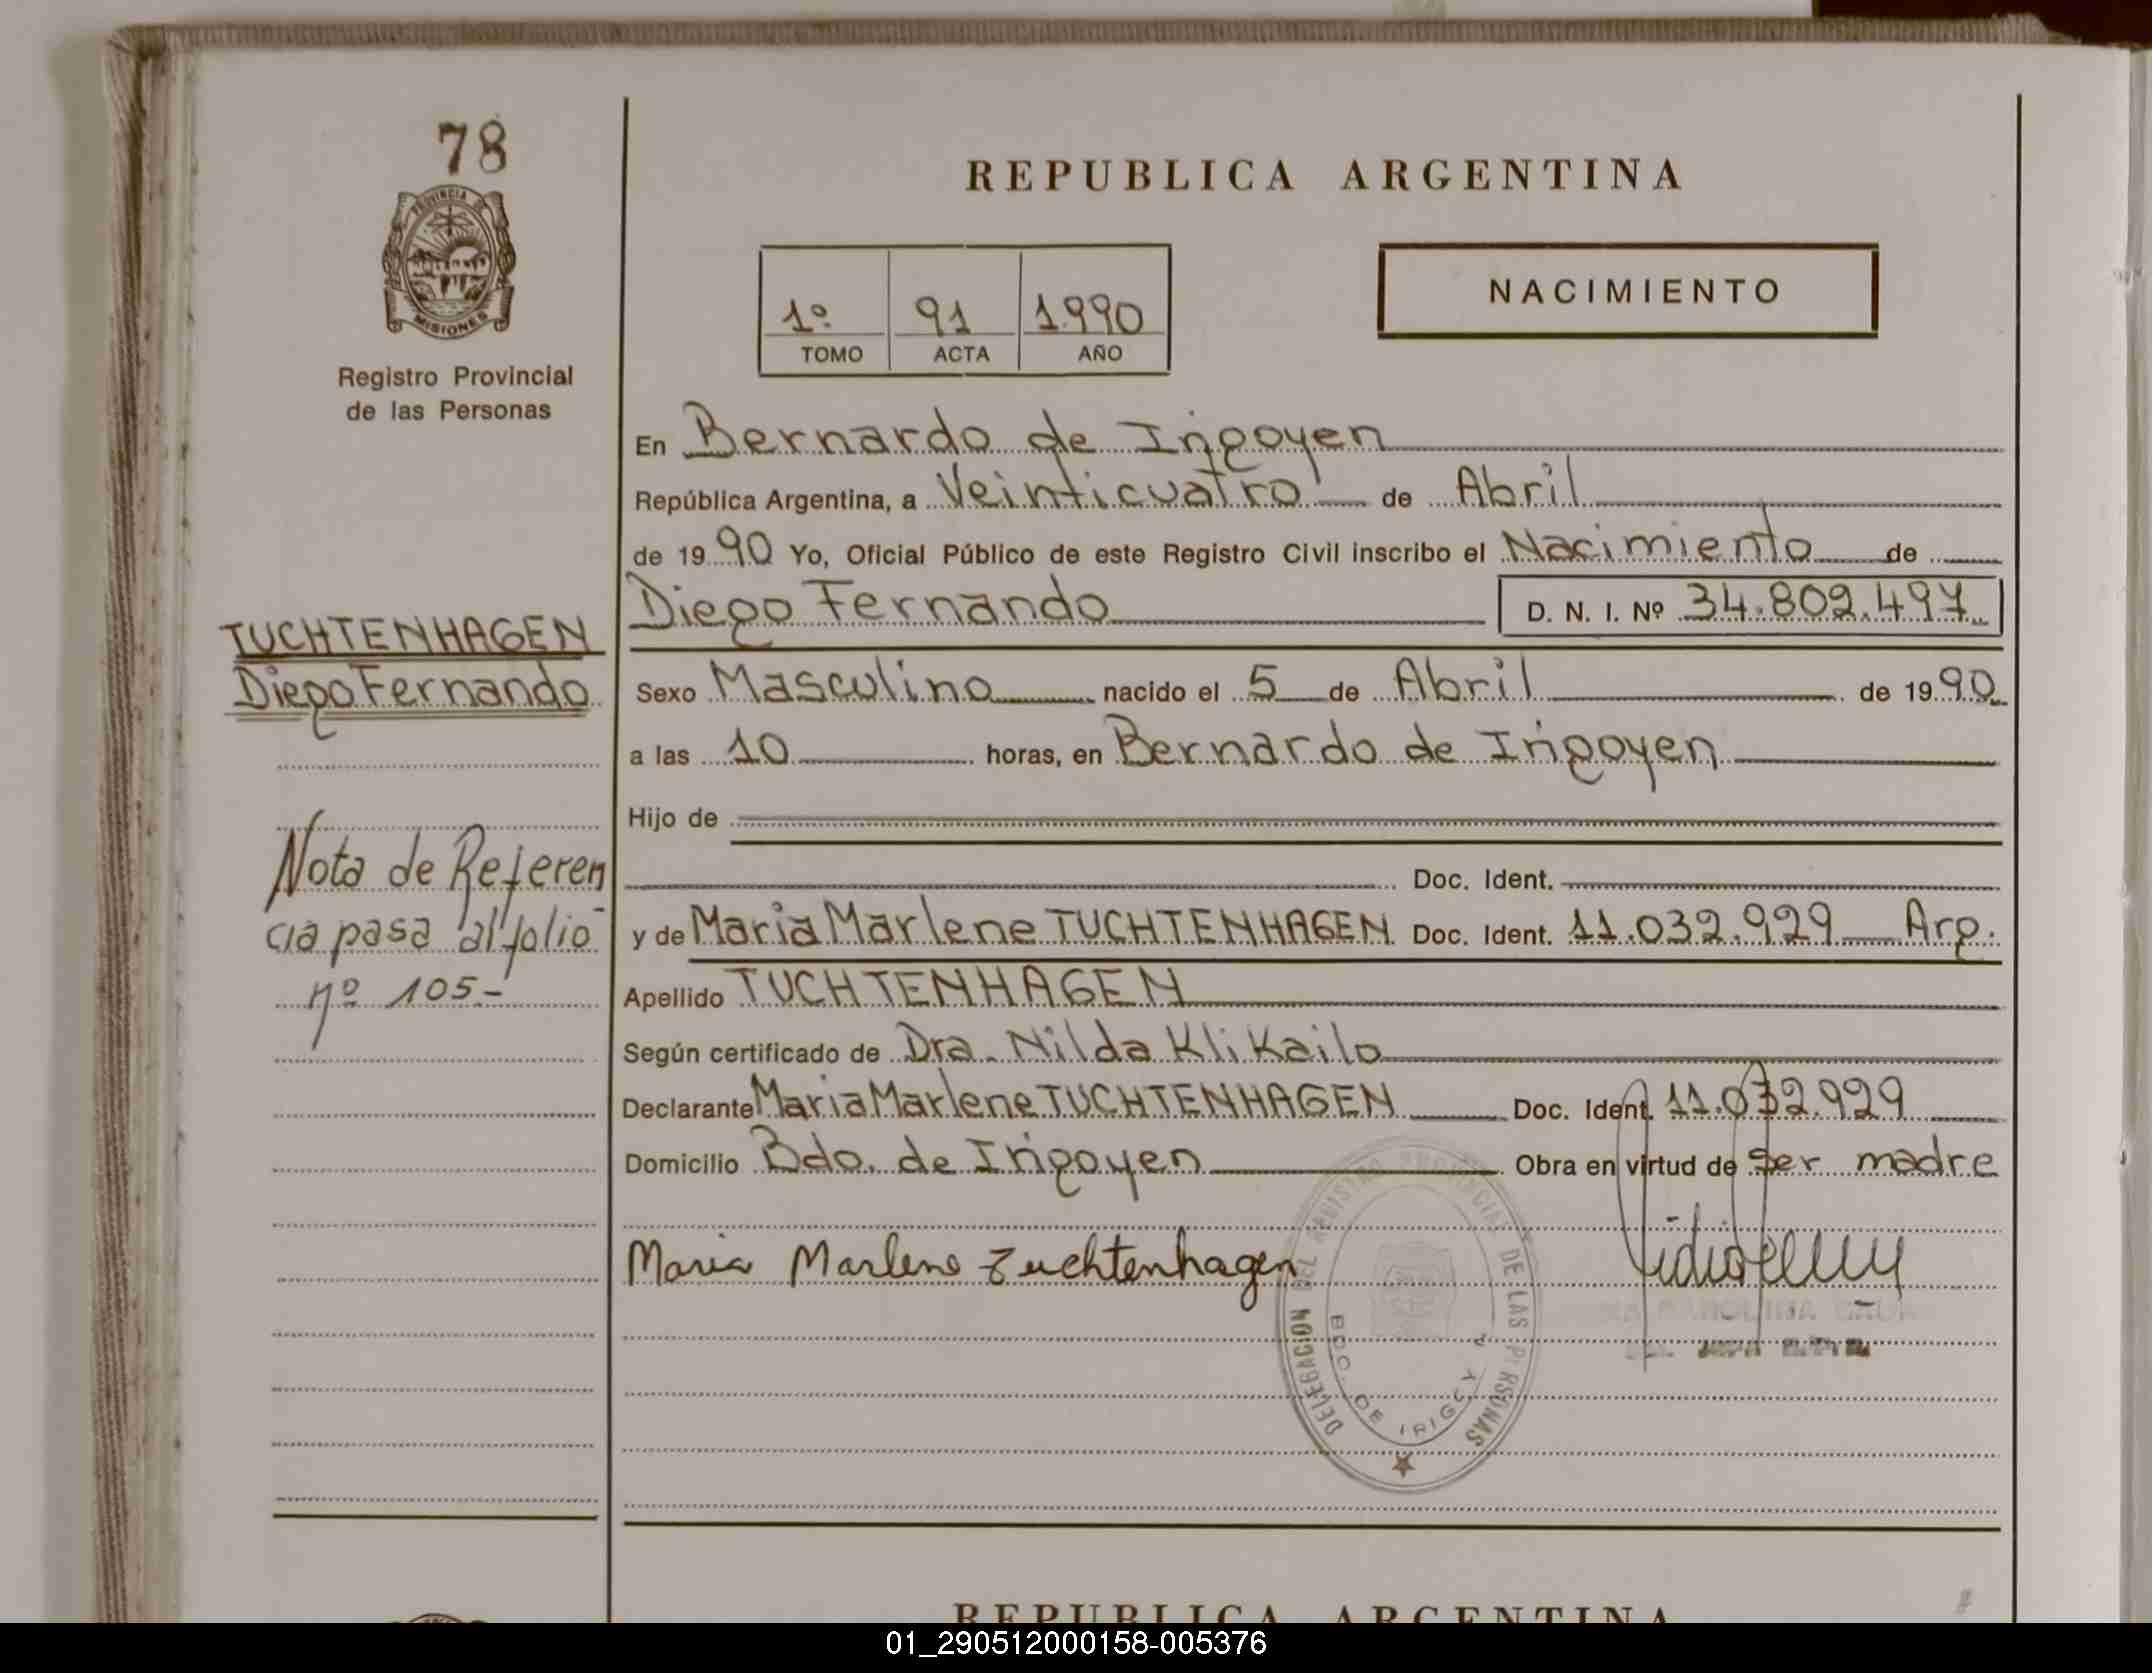 78
PROVINCIA DE
MISIONES
Registro Provincial
de las Personas
REPUBLICA ARGENTINA
1º 91 1.990
TOMO ACTA AÑO
NACIMIENTO
En Bernardo de Irigoyen
República Argentina, a Veinticuatro de Abril
de 1990 Yo, Oficial Público de este Registro Civil inscribo el Nacimiento de
Diego Fernando D. N. I. Nº 34.802.497
TUCHTENHAGEN
Diego Fernando
Sexo Masculino nacido el 5 de Abril de 1990
a las 10 horas, en Bernardo de Irigoyen
Hijo de
Doc. Ident.
Nota de Referen
cia pasa al folio
nº 105-
y de Maria Marlene TUCHTENHAGEN Doc. Ident. 11.032.929 Arg.
Apellido TUCHTENHAGEN
Según certificado de Dra. Nilda Klikailo
Declarante Maria Marlene TUCHTENHAGEN Doc. Ident. 11.032.929
Domicilio Bdo. de Irigoyen Obra en virtud de ser madre
Maria Marlene Tuchtenhagen
DELEGACION DEL REGISTRO PROVINCIAL DE LAS PERSONAS
BDO. DE IRIGOYEN
REPUBLICA ARGENTINA
01_290512000158-005376